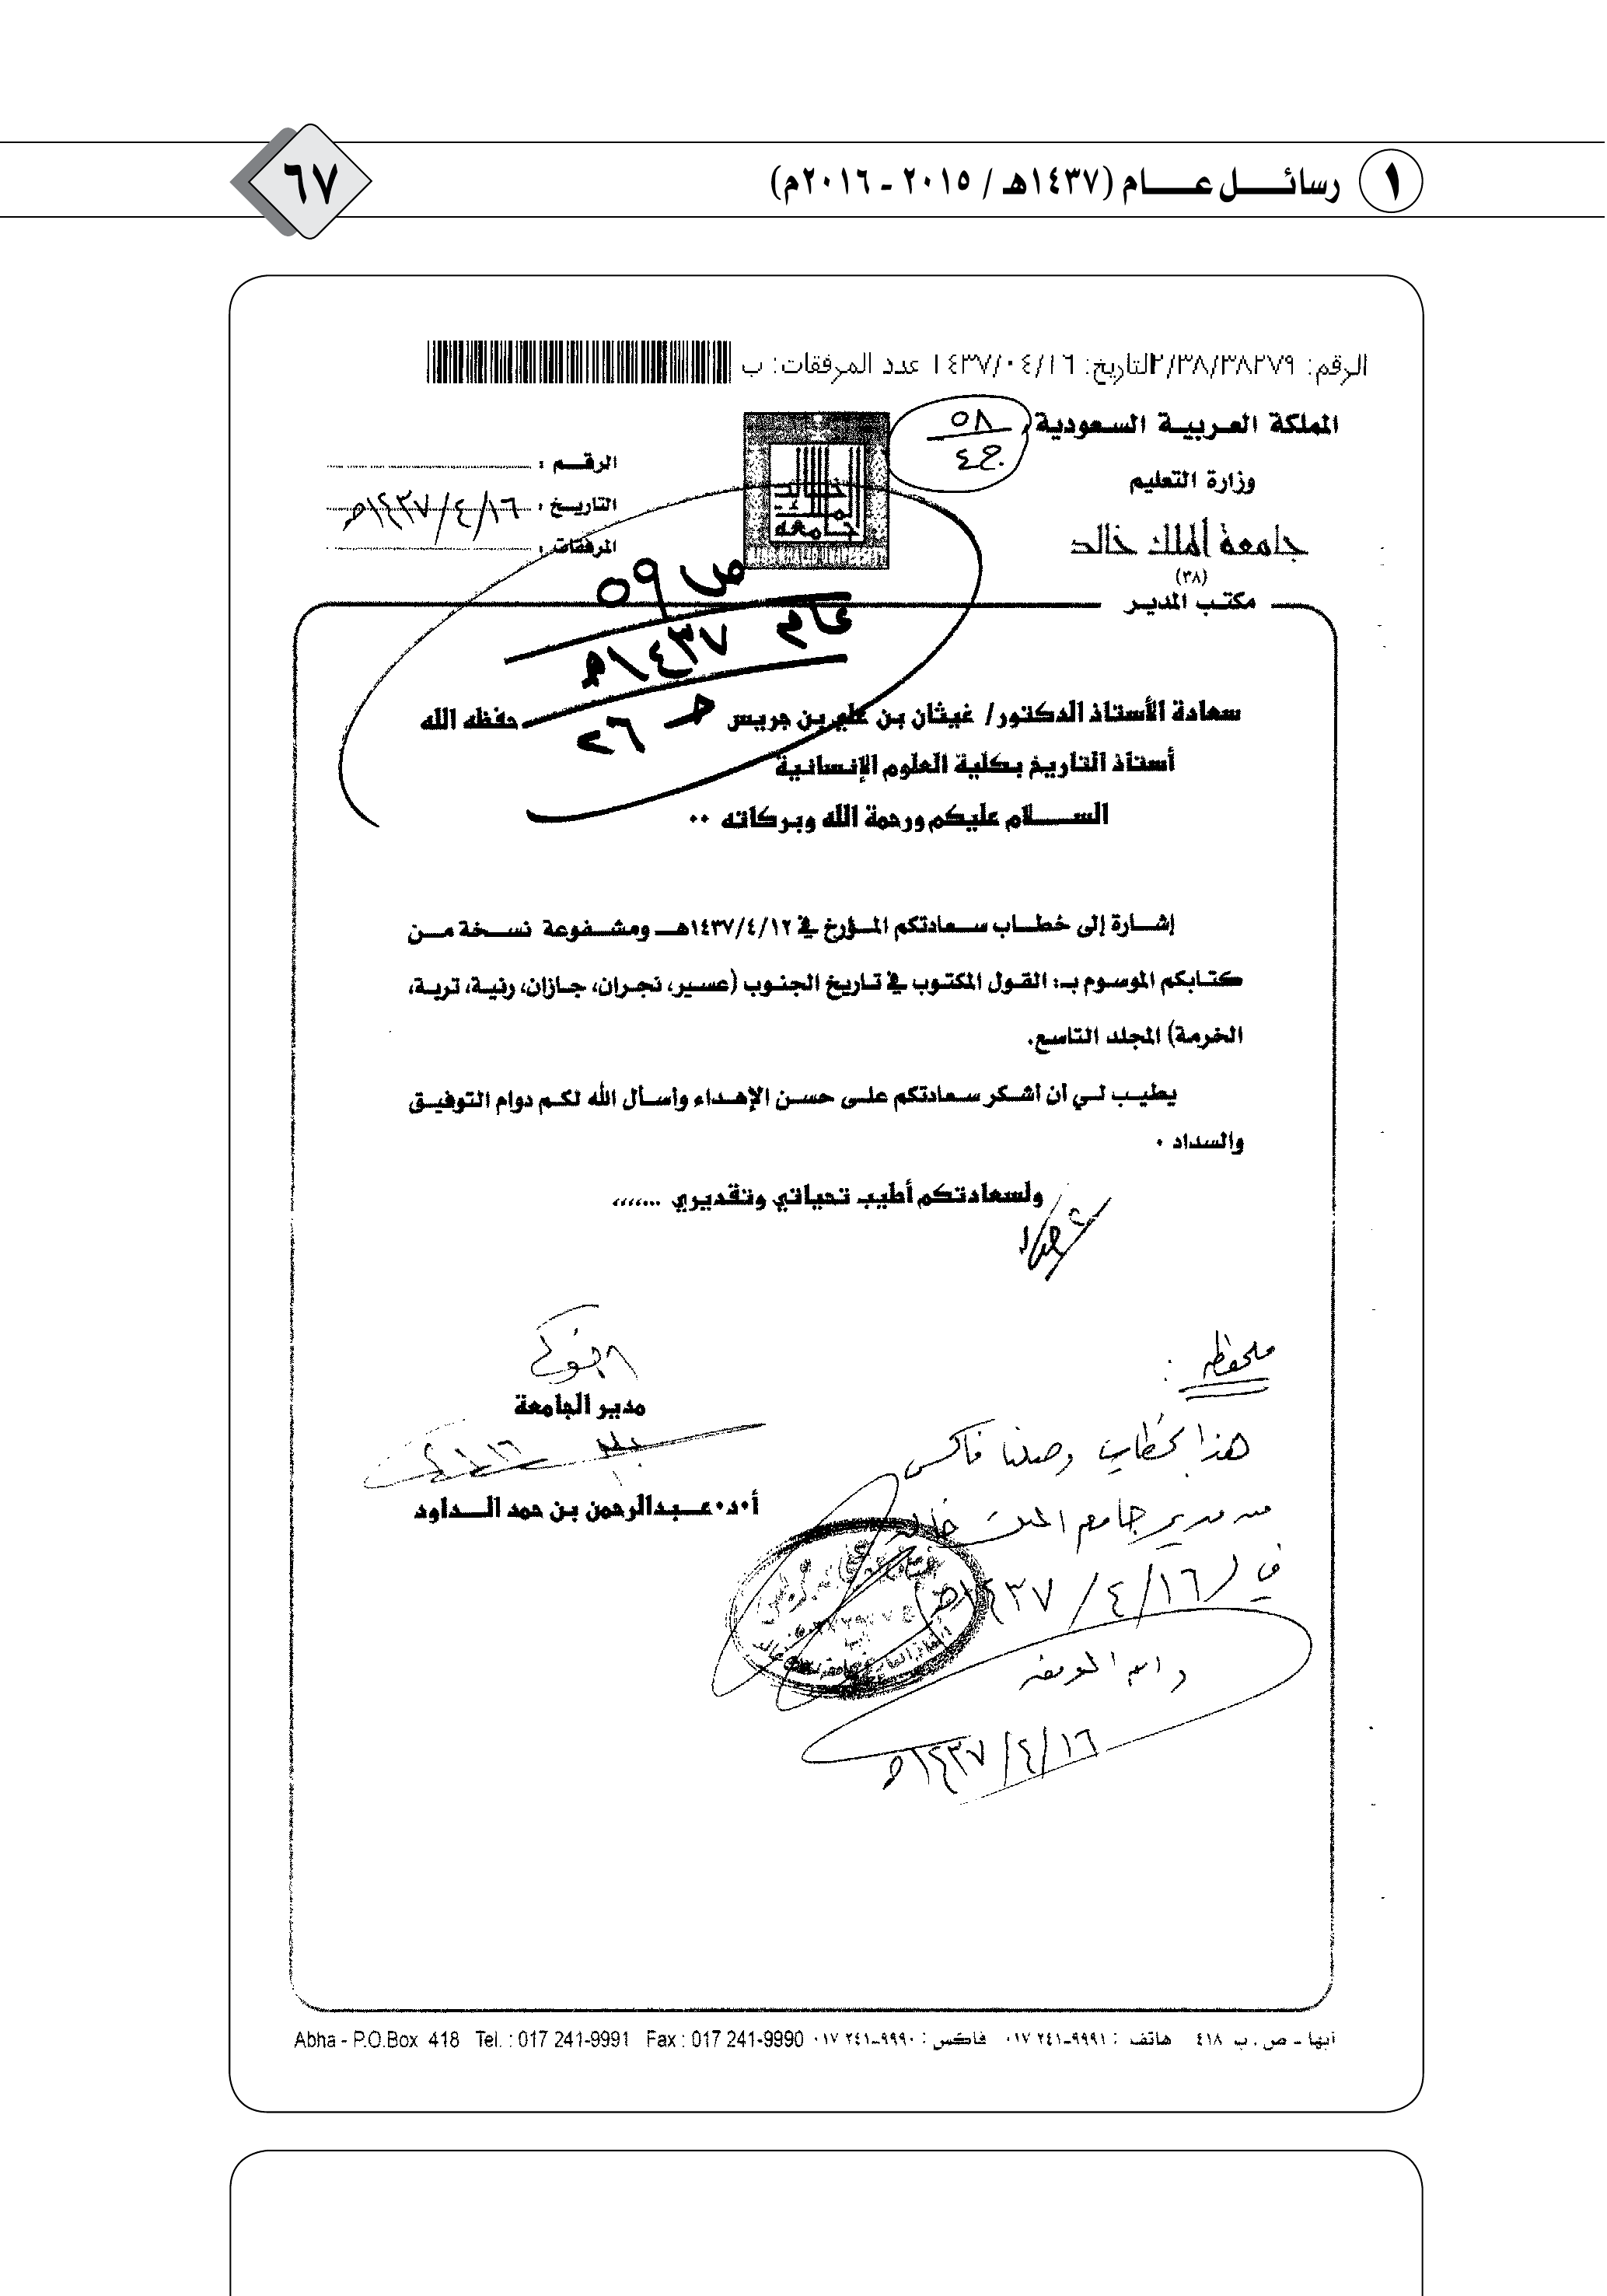 ١ رسائــــل عــــام (١٤٣٧هـ / ٢٠١٥ - ٢٠١٦م)
٦٧
الرقم: ٢/٣٨/٣٨٢٧٩التاريخ: ١٤٣٧/٠٤/١٦ عدد المرفقات: ب
المملكة العربية السعودية
٥٨
ج٤
وزارة التعليم
جامعة الملك خالد
(٣٨)
مكتب المدير
الرقم :
التاريخ : ١٤٣٧/٤/١٦هـ
المرفقات :
ص ٥٩
عام ١٤٣٧هـ
حـ ٢٦
سعادة الأستاذ الدكتور/ غيثان بن علي بن جريس حفظه الله
أستاذ التاريخ بكلية العلوم الإنسانية
الســـلام عليكم ورحمة الله وبركاته ٠٠
إشارة إلى خطاب سعادتكم المؤرخ في ١٤٣٧/٤/١٢هـ ومشفوعة نسخة من
كتابكم الموسوم بـ: القول المكتوب في تاريخ الجنوب (عسير، نجران، جازان، رنية، تربة،
الخرمة) المجلد التاسع.
يطيب لي أن أشكر سعادتكم على حسن الإهداء وأسأل الله لكم دوام التوفيق
والسداد ٠
ولسعادتكم أطيب تحياتي وتقديري ،،،،،،،
مدير الجامعة
أ٠د٠عـبدالرحمن بن حمد الــداود
ملحوظه :
هذا الخطاب وصلنا فاكس
من مدير جامعه الملك خالد
في ١٤٣٧/٤/١٦هـ
١٤٣٧/٤/١٦هـ
أبها - ص . ب ٤١٨ هاتف : ٩٩٩١-٢٤١ ٠١٧ فاكس : ٩٩٩٠-٢٤١ ٠١٧ Abha - P.O.Box 418 Tel. : 017 241-9991 Fax : 017 241-9990